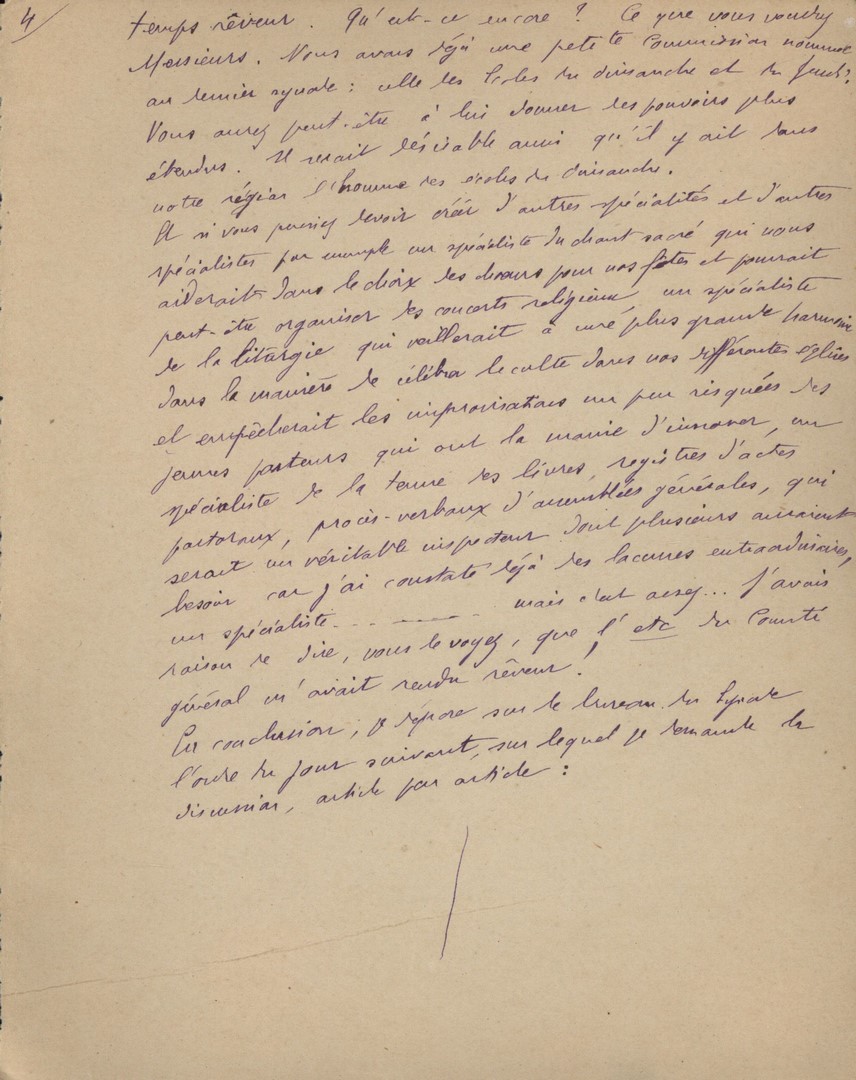 4/
temps rêveur. Qu'est-ce encore ? Ce que vous voudrez
Messieurs. Nous avons déjà une petite Commission nommée
au dernier synode : celle des Ecoles du dimanche et du jeudi.
Vous aurez peut-être à lui donner des pouvoirs plus
étendus. Il serait désirable aussi qu'il y ait dans
notre région l'homme des écoles du dimanche.
Et si vous pensiez devoir créer d'autres spécialités et d'autres
spécialistes par exemple un spécialiste du chant sacré qui nous
aiderait dans le choix des chœurs pour nos fêtes et pourrait
peut-être organiser des concerts religieux, un spécialiste
de la liturgie qui veillerait à une plus grande harmonie
dans la manière de célébrer le culte dans nos différentes églises
et empêcherait les improvisations un peu risquées des
jeunes pasteurs qui ont la manie d'innover, un
spécialiste de la tenue des livres, registres d'actes
pastoraux, procès-verbaux d'assemblées générales, qui
serait un véritable inspecteur dont plusieurs auraient
besoin car j'ai constaté déjà des lacunes extraordinaires,
un spécialiste . . . . . . . . mais c'est assez... J'avais
raison de dire, vous le voyez, que l'etc du Comité
général m'avait rendu rêveur !
En conclusion, je dépose sur le bureau du Synode
l'ordre du jour suivant, sur lequel je demande la
discussion, article par article :